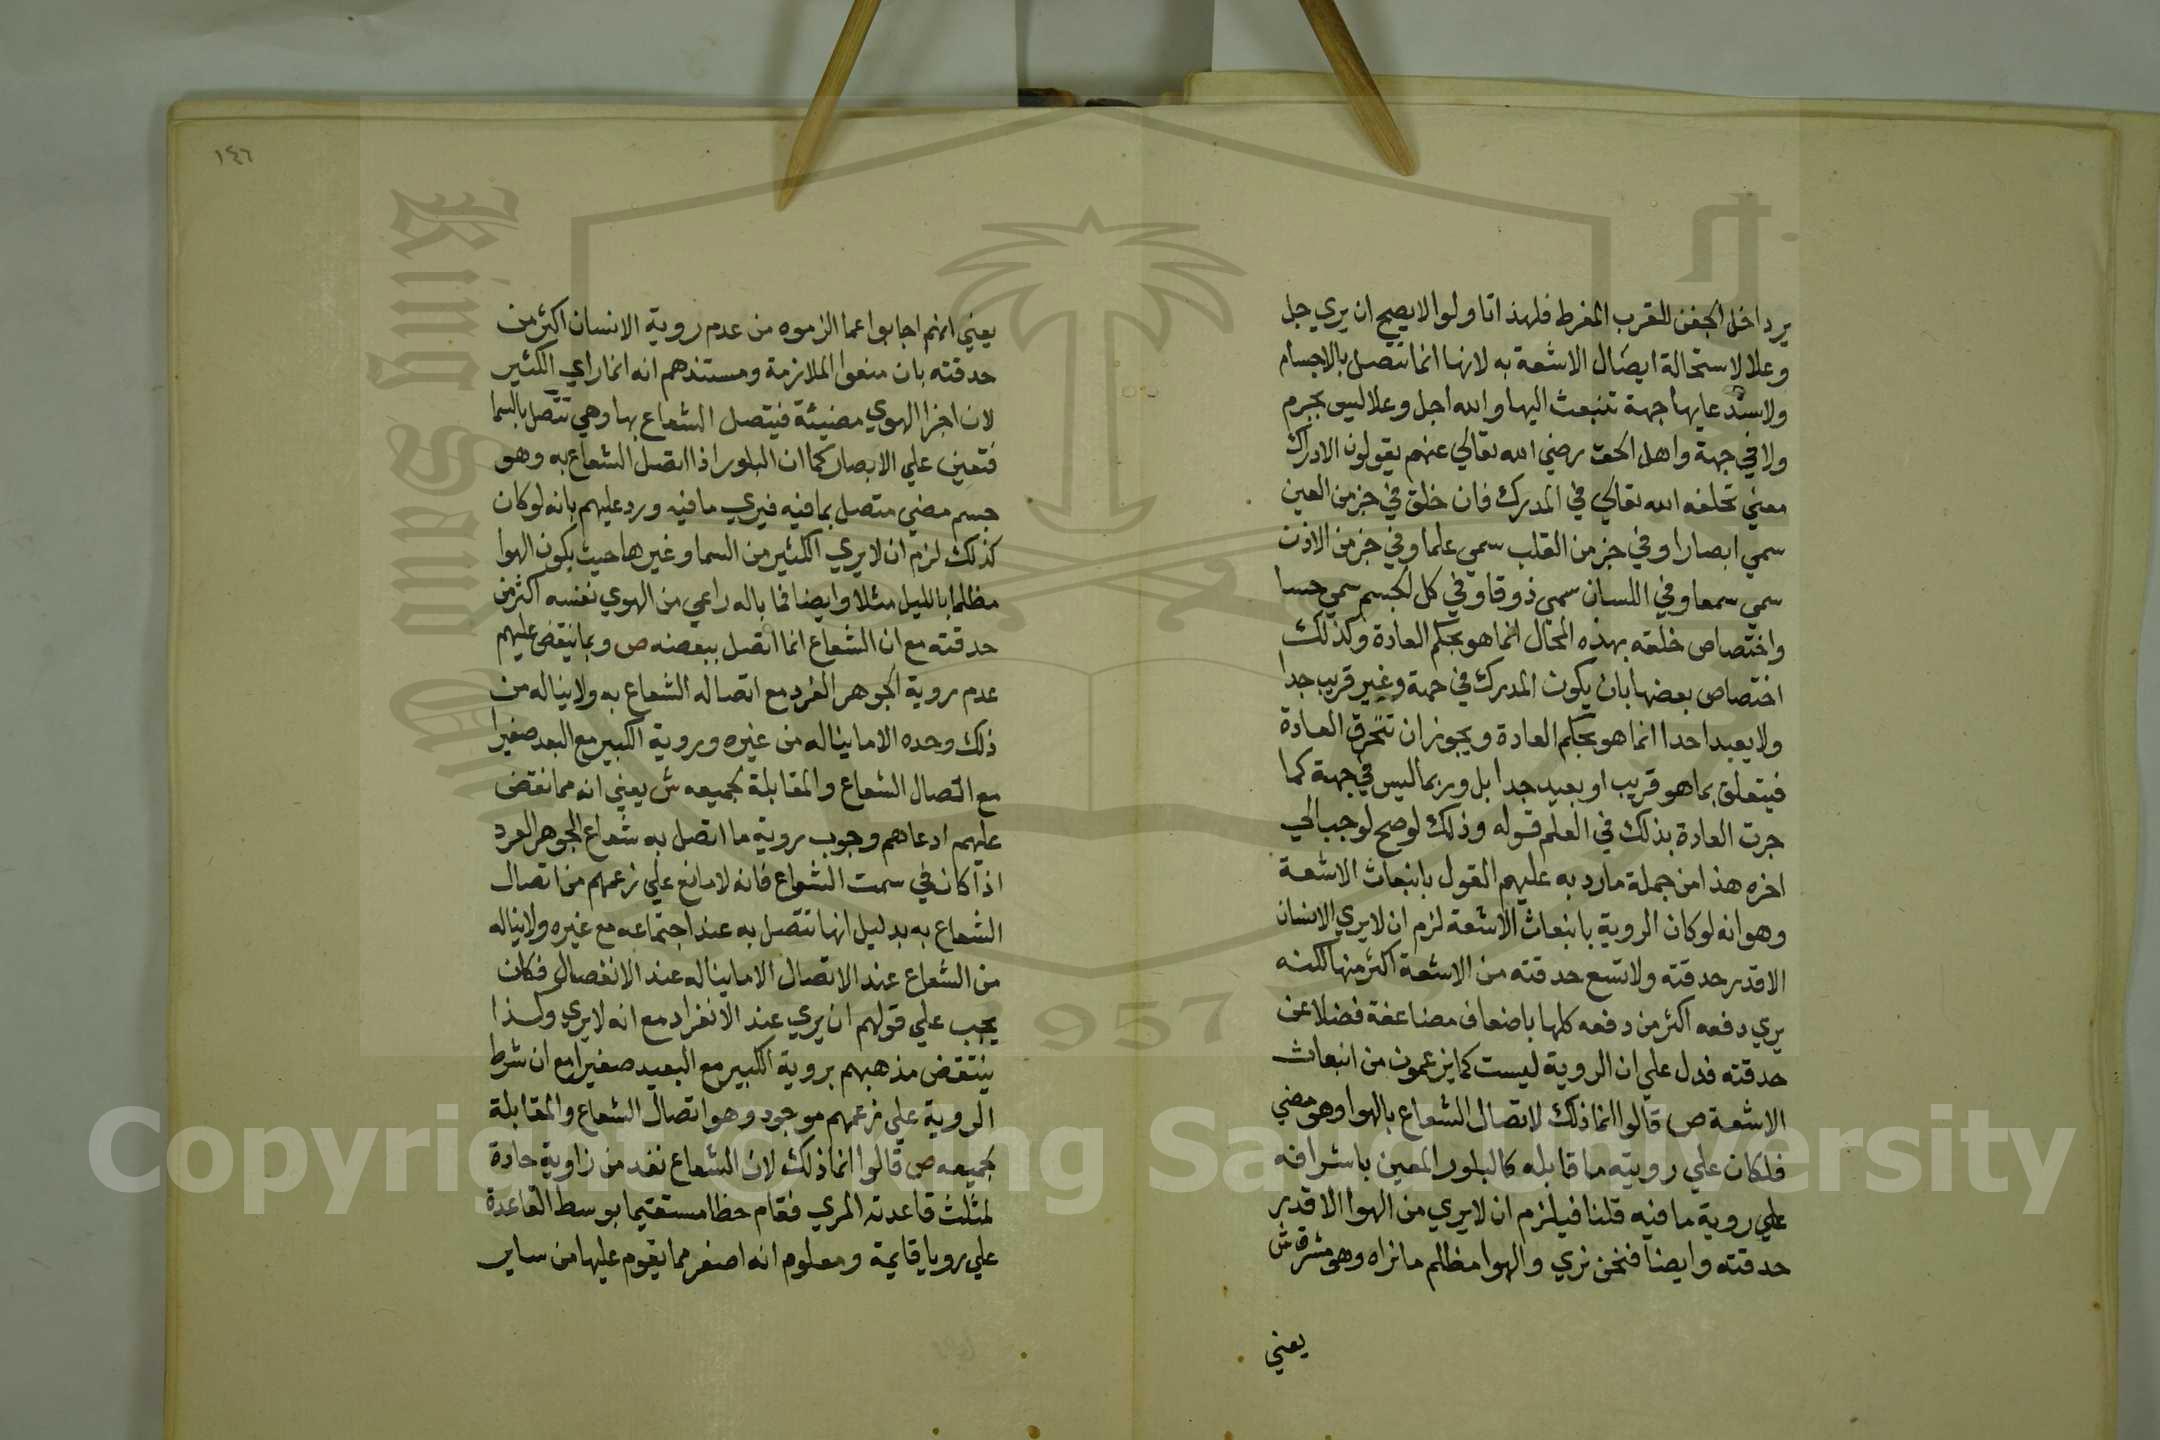 ير داخل الجفن للقرب المفرط فلهذا تاولوا لا يصح ان يري جل
وعلا لاستحالة ايصال الاشعة به لانها انما تتصل بالاجسام
ولاستدعايها جهة تنبعث اليها والله اجل وعلا ليس بجرم
ولا في جهة واهل الحق رضي الله تعالي عنهم يقولون الادراك
معني تخلفه الله تعالي في المدرك فان خلق في جز من العين
سمي ابصارا وفي جز من القلب سمي علما وفي جز من الاذن
سمي سمعا وفي اللسان سمي ذوقا وفي كل الجسم سمي حسا
واختصاص خلقه بهذه المحال انما هو بحكم العادة وكذلك
اختصاص بعضها بان يكون المدرك في جهة وغير قريب جدا
ولا بعيد احدا انما هو بحكم العادة ويجوز ان تتخرق العادة
فيتعلق بما هو قريب او بعيد جدا بل وربما ليس في جهة كما
جرت العادة بذلك في العلم قوله وذلك لو صح لوجب الي
اخره هذا من جملة ما رد به عليهم القول بانبعاث الاشعة
وهو انه لو كان الروية بانبعاث الاشعة لزم ان لا يري الانسان
الا قدر حدقته ولا تسع حدقته من الاشعة اكثر منها لكنه
يري دفعه اكثر من دفعه كلها باضعاف مضاعفة فضلا عن
حدقته فدل علي ان الروية ليست كما يزعمون من انبعاث
الاشعة ص قالوا انما ذلك لاتصال الشعاع بالهوا وهو مضي
فلكان علي رويته ما قابله كالبلور المعين باشراقه
علي روية ما فيه قلنا فيلزم ان لا يري من الهوا الا قدر
حدقته وايضا فنحن نري والهوا مظلم ما نراه وهو مشرق ش
يعني
١٤٦
يعني انهم اجابوا عما الزموه من عدم روية الانسان اكثر من
حدقته بان منعوا الملازمة ومستندهم انه انما راي الكثير
لان اجزا الهوي مضيئة فيتصل الشعاع بها وهي تتصل بالسما
فتعين علي الابصار كما ان البلور اذا اتصل الشعاع به وهو
جسم مضي متصل بما فيه فيري ما فيه ورد عليهم بانه لو كان
كذلك لزم ان لا يري الكثير من السما وغيرها حيث يكون الهوا
مظلما بالليل مثلا وايضا فما باله راعي من الهوي نفسه اكثر من
حدقته مع ان الشعاع انما اتصل ببعضه ص وبما ينقض عليهم
عدم روية الجوهر الفرد مع اتصاله الشعاع به ولا يناله من
ذلك وحده الا ما يناله من غيره وروية الكبير مع البعد صغيرا
مع اتصال الشعاع والمقابلة لجميعه ش يعني انه مما نقض
عليهم ادعاهم وجوب روية ما اتصل به شعاع الجوهر الفرد
اذا كان في سمت الشعاع فانه لا مانع علي زعمهم من اتصال
الشعاع به بدليل انها تتصل به عند اجتماعه مع غيره ولا يناله
من الشعاع عند الاتصال الا ما يناله عند الانفصال فكان
يجب علي قولهم ان يري عند الانفراد مع انه لا يري وكذا
ينتقض مذهبهم بروية الكبير مع البعيد صغيرا مع ان شرط
الروية علي زعمهم موجود وهو اتصال الشعاع والمقابلة
لجميعه ص قالوا انما ذلك لان الشعاع نفد من زاوية حادة
لمثلث قاعدته المري فقام خطا مستقيما بوسط القاعدة
علي روبا قايمة ومعلوم انه اصغر مما يقوم عليها من ساير
King Saud University
1957
Copyright © King Saud University